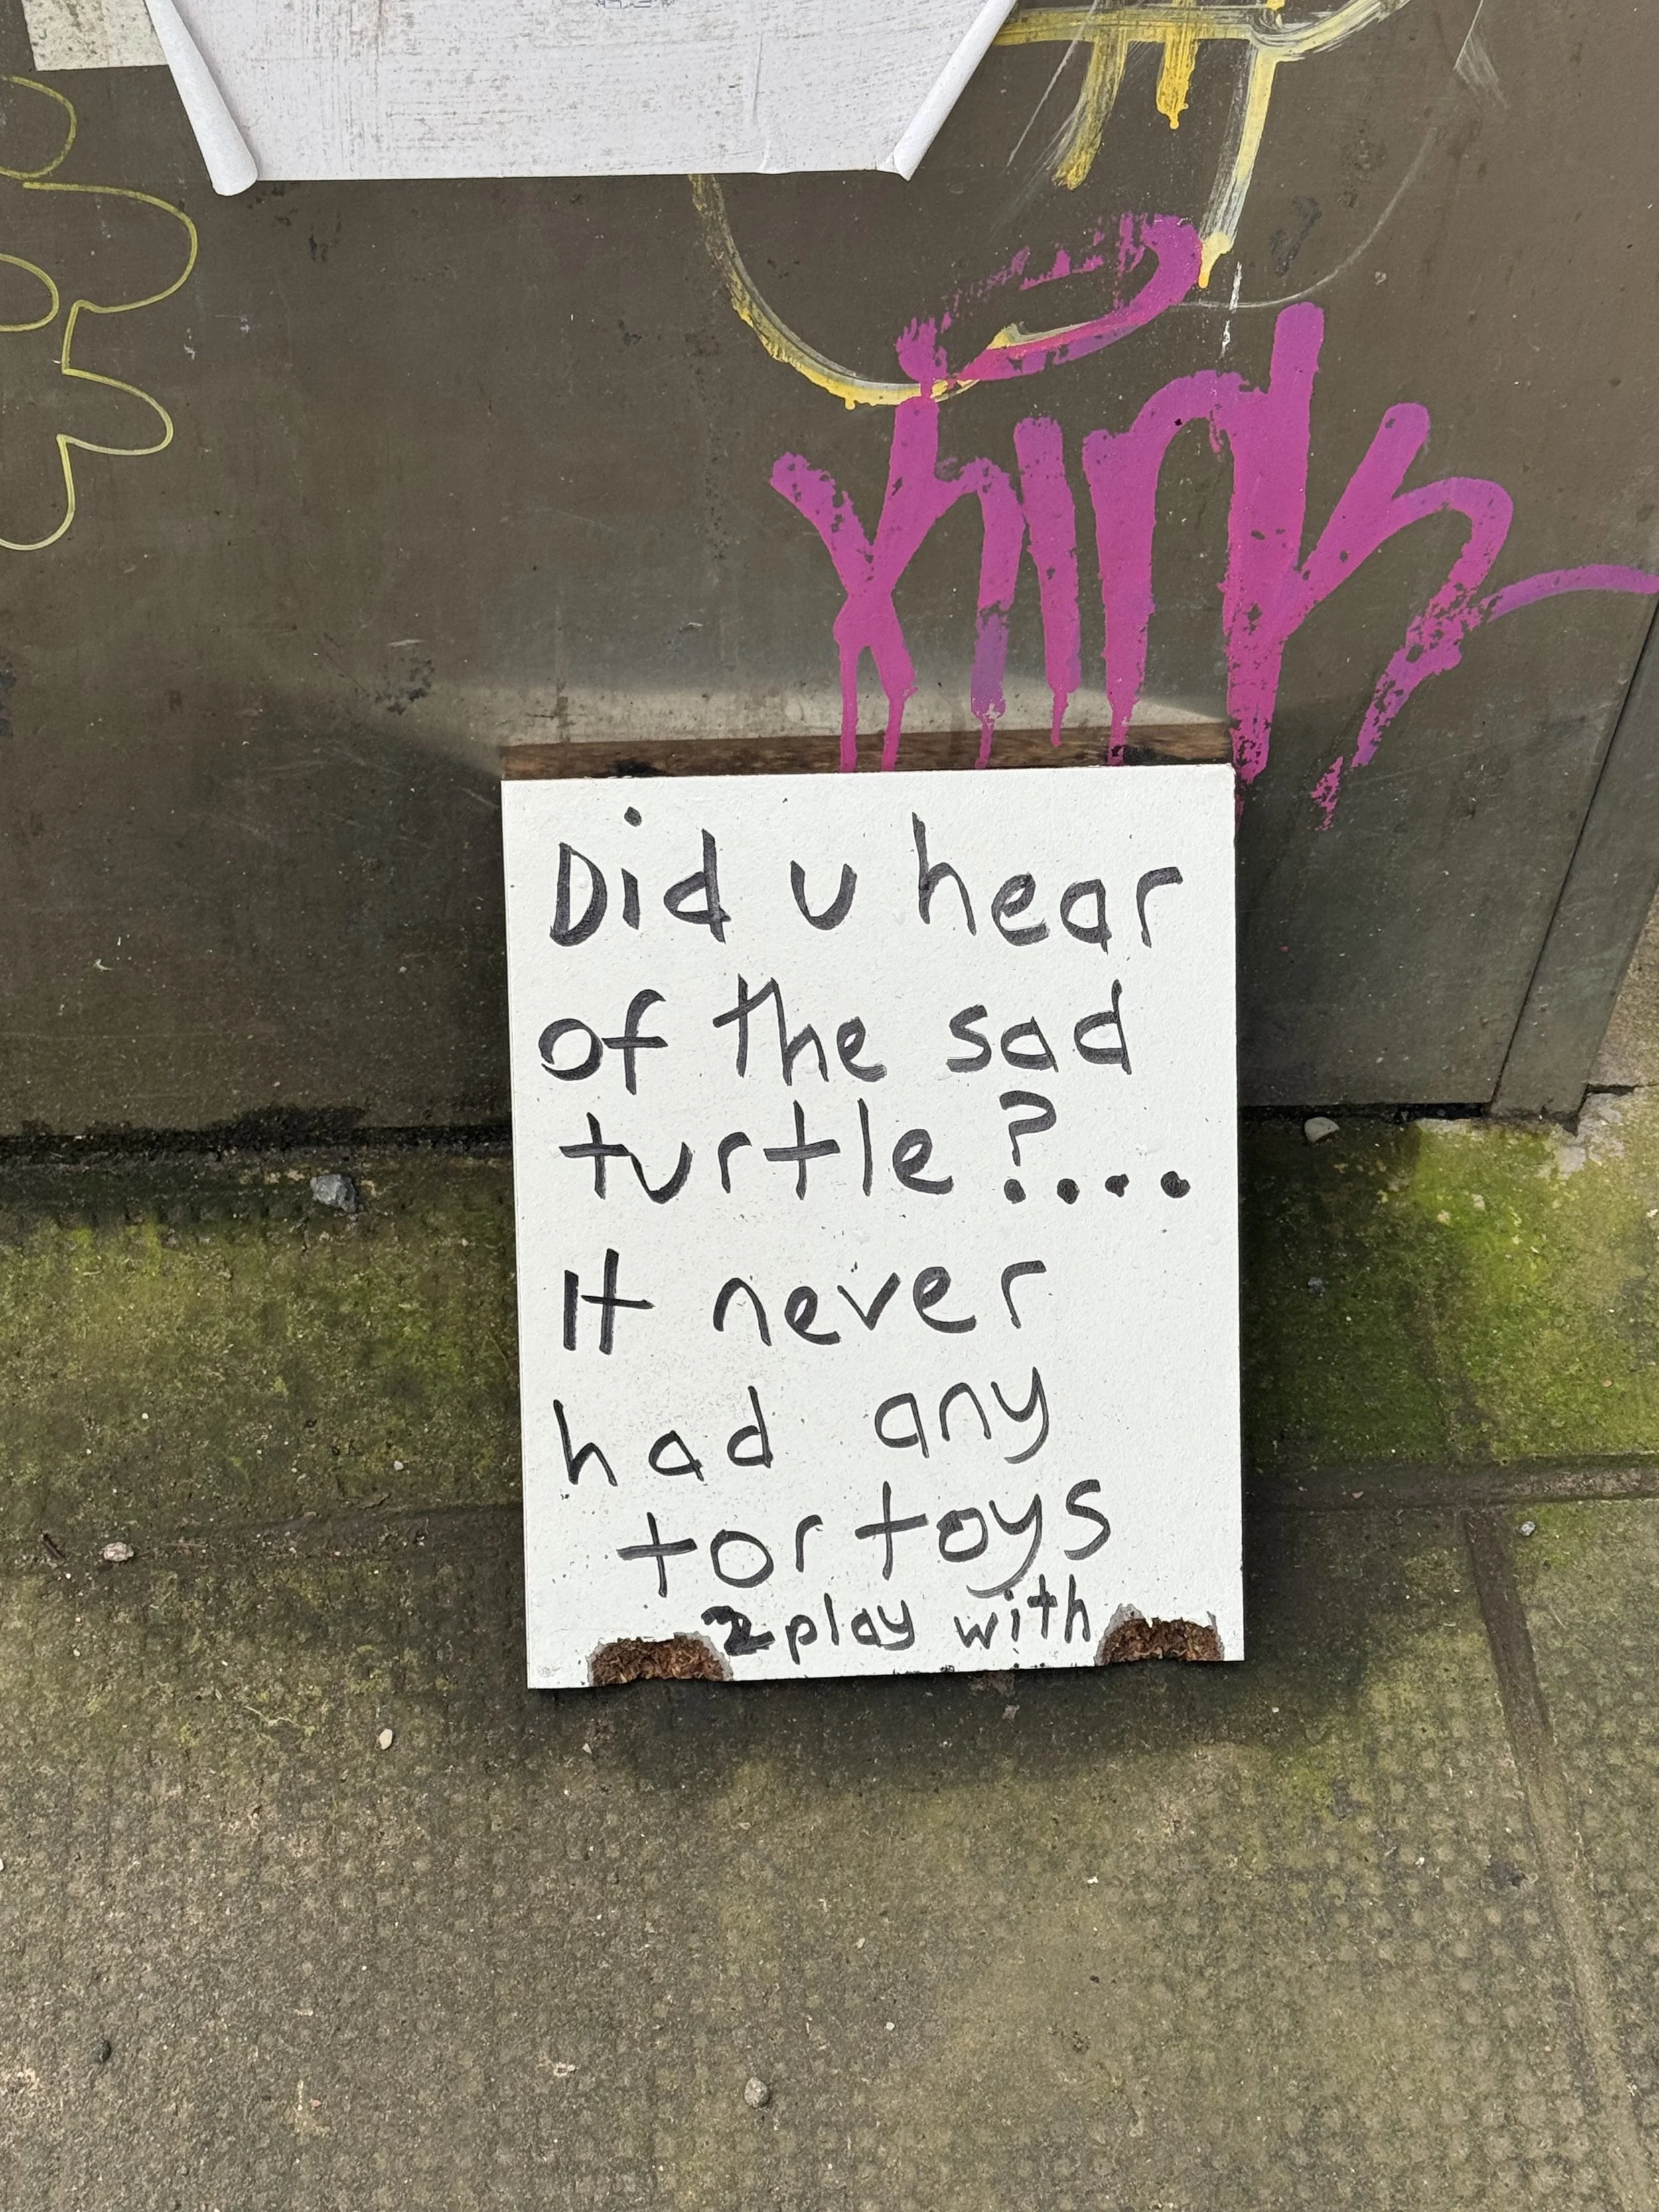 Did u hear
of the sad
turtle?....
It never
had any
tortoys
2 play with